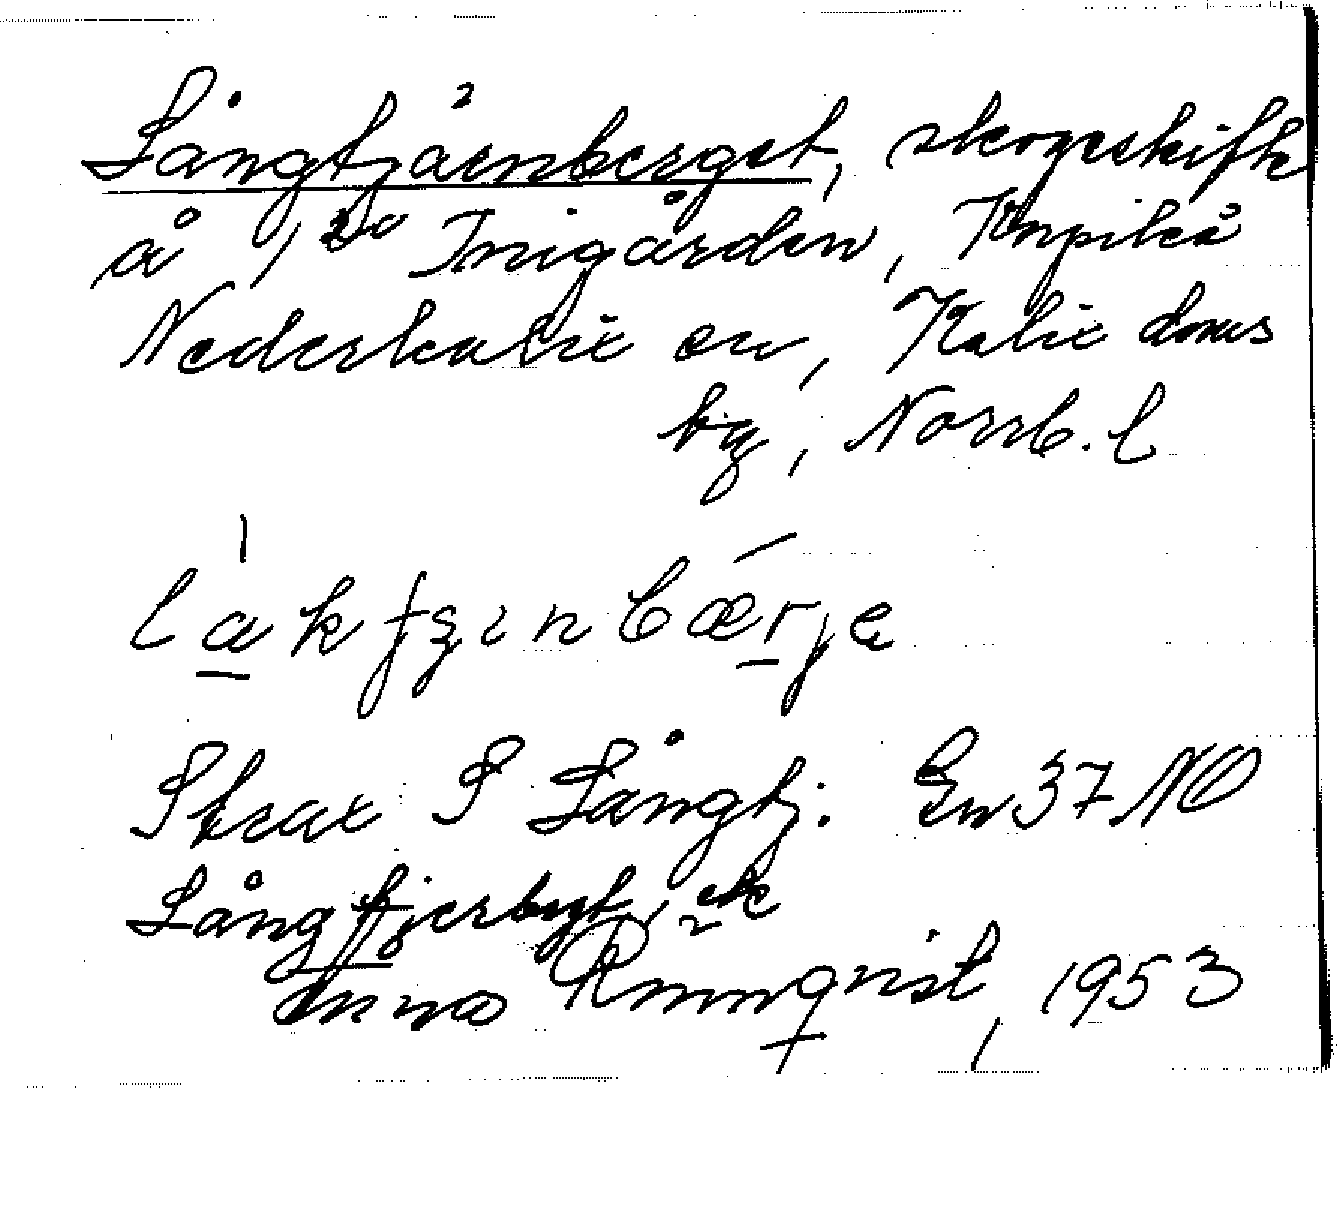 Långtjärnberget, skogsskifte
å 1 20 Inigården, Kypileå
Nederkalix sn, Kalix doms
bg, Norrb. l
lakfʒınbærje
Strax S Långtj. En 37 NO
Långtjerbgt, ek
Anna Rönnqvist, 1953